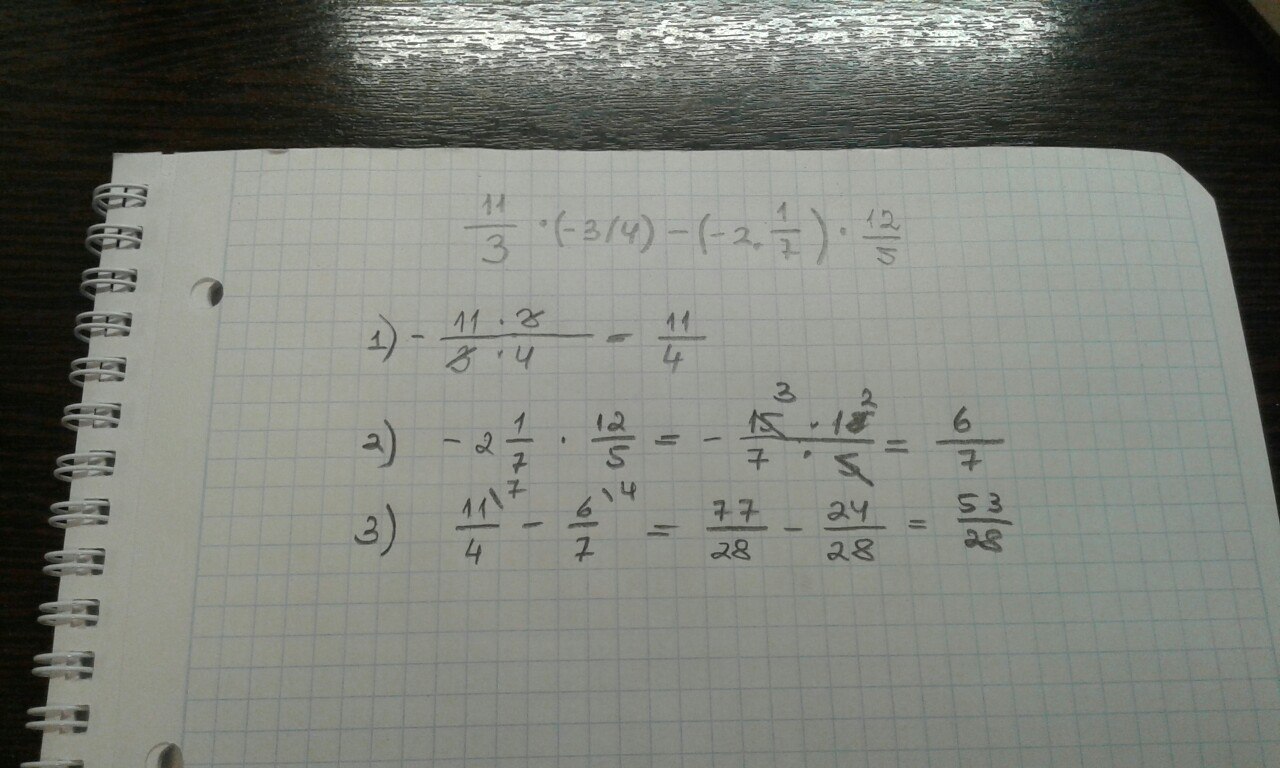 11/3 · (-3/4) - (-2. 1/7) · 12/5
1) - 11 · 3 / 3 · 4 = 11/4
2) -2 1/7 · 12/5 = - 15 3 · 12 2 / 7 · 5 = 6/7
3) 11/4 \7 - 6/7 \4 = 77/28 - 24/28 = 53/28